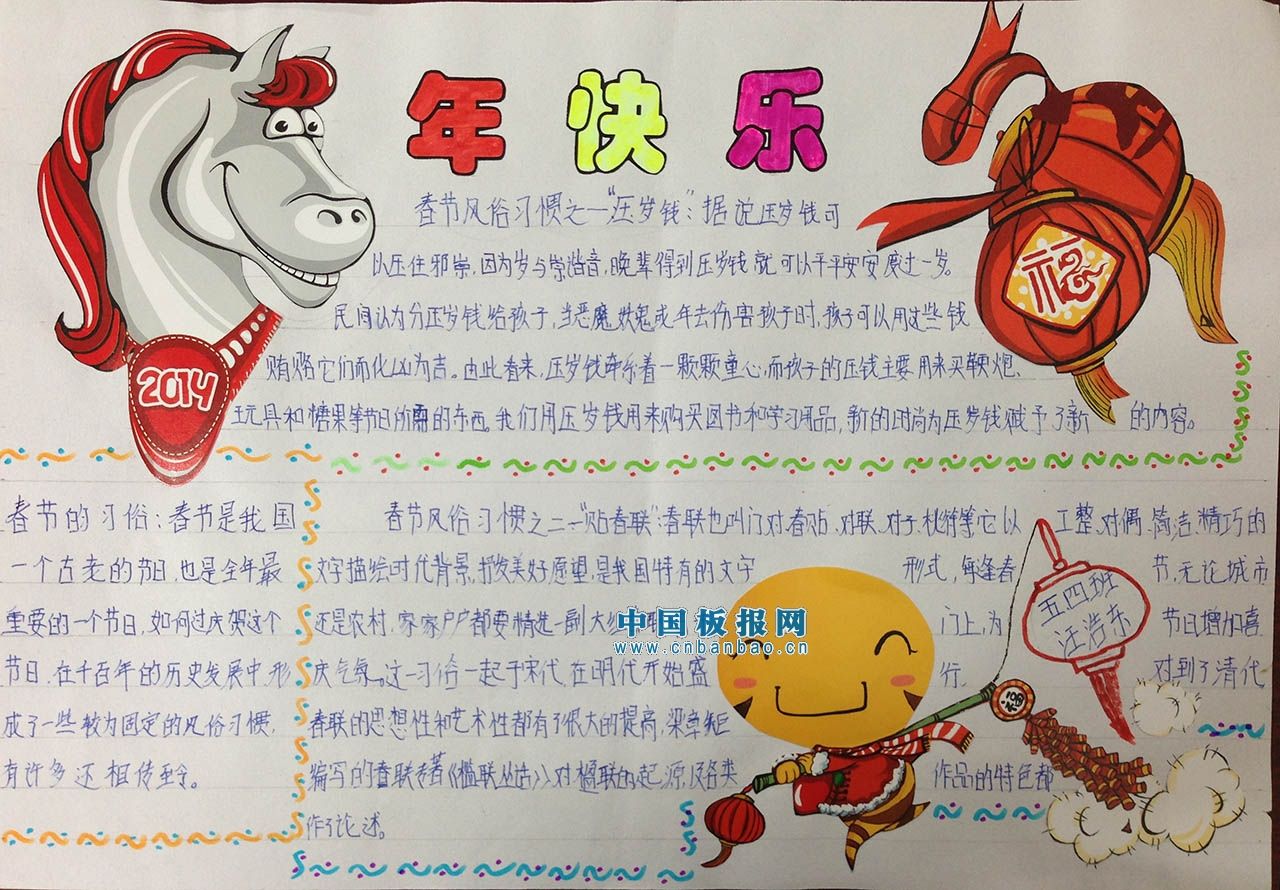 年快乐
2014
福
春节风俗习惯之一"压岁钱":据说压岁钱可
以压住邪祟,因为岁与祟谐音,晚辈得到压岁钱就可以平平安安度过一岁。
民间认为分压岁钱给孩子,当恶魔妖鬼或年去伤害孩子时,孩子可以用这些钱
贿赂它们而化凶为吉。由此看来,压岁钱牵系着一颗颗童心,而孩子的压钱主要用来买鞭炮、
玩具和糖果等节日所需的东西。我们用压岁钱用来购买图书和学习用品,新的时尚为压岁钱赋予了新的内容。
春节的习俗:春节是我国
一个古老的节日,也是全年最
重要的一个节日,如何过庆贺这个
节日,在千百年的历史发展中,形
成了一些较为固定的风俗习惯,
有许多还相传至今。
春节风俗习惯之二一"贴春联":春联也叫门对、春贴、对联、对子、桃符等,它以工整、对偶、简洁、精巧的
文字描绘时代背景,抒发美好愿望,是我国特有的文字形式,每逢春节,无论城市
还是农村,家家户户都要精选一副大红门上,为节日增加喜
庆气氛。这一习俗一起于宋代,在明代开始盛行,对到了清代,
春联的思想性和艺术性都有了很大的提高,梁章矩
编写的春联专著《楹联丛话》对楹联的起源及各类作品的特色都
作了论述。
五四班
汪浩东
中国板报网
www.cnbanbao.cn